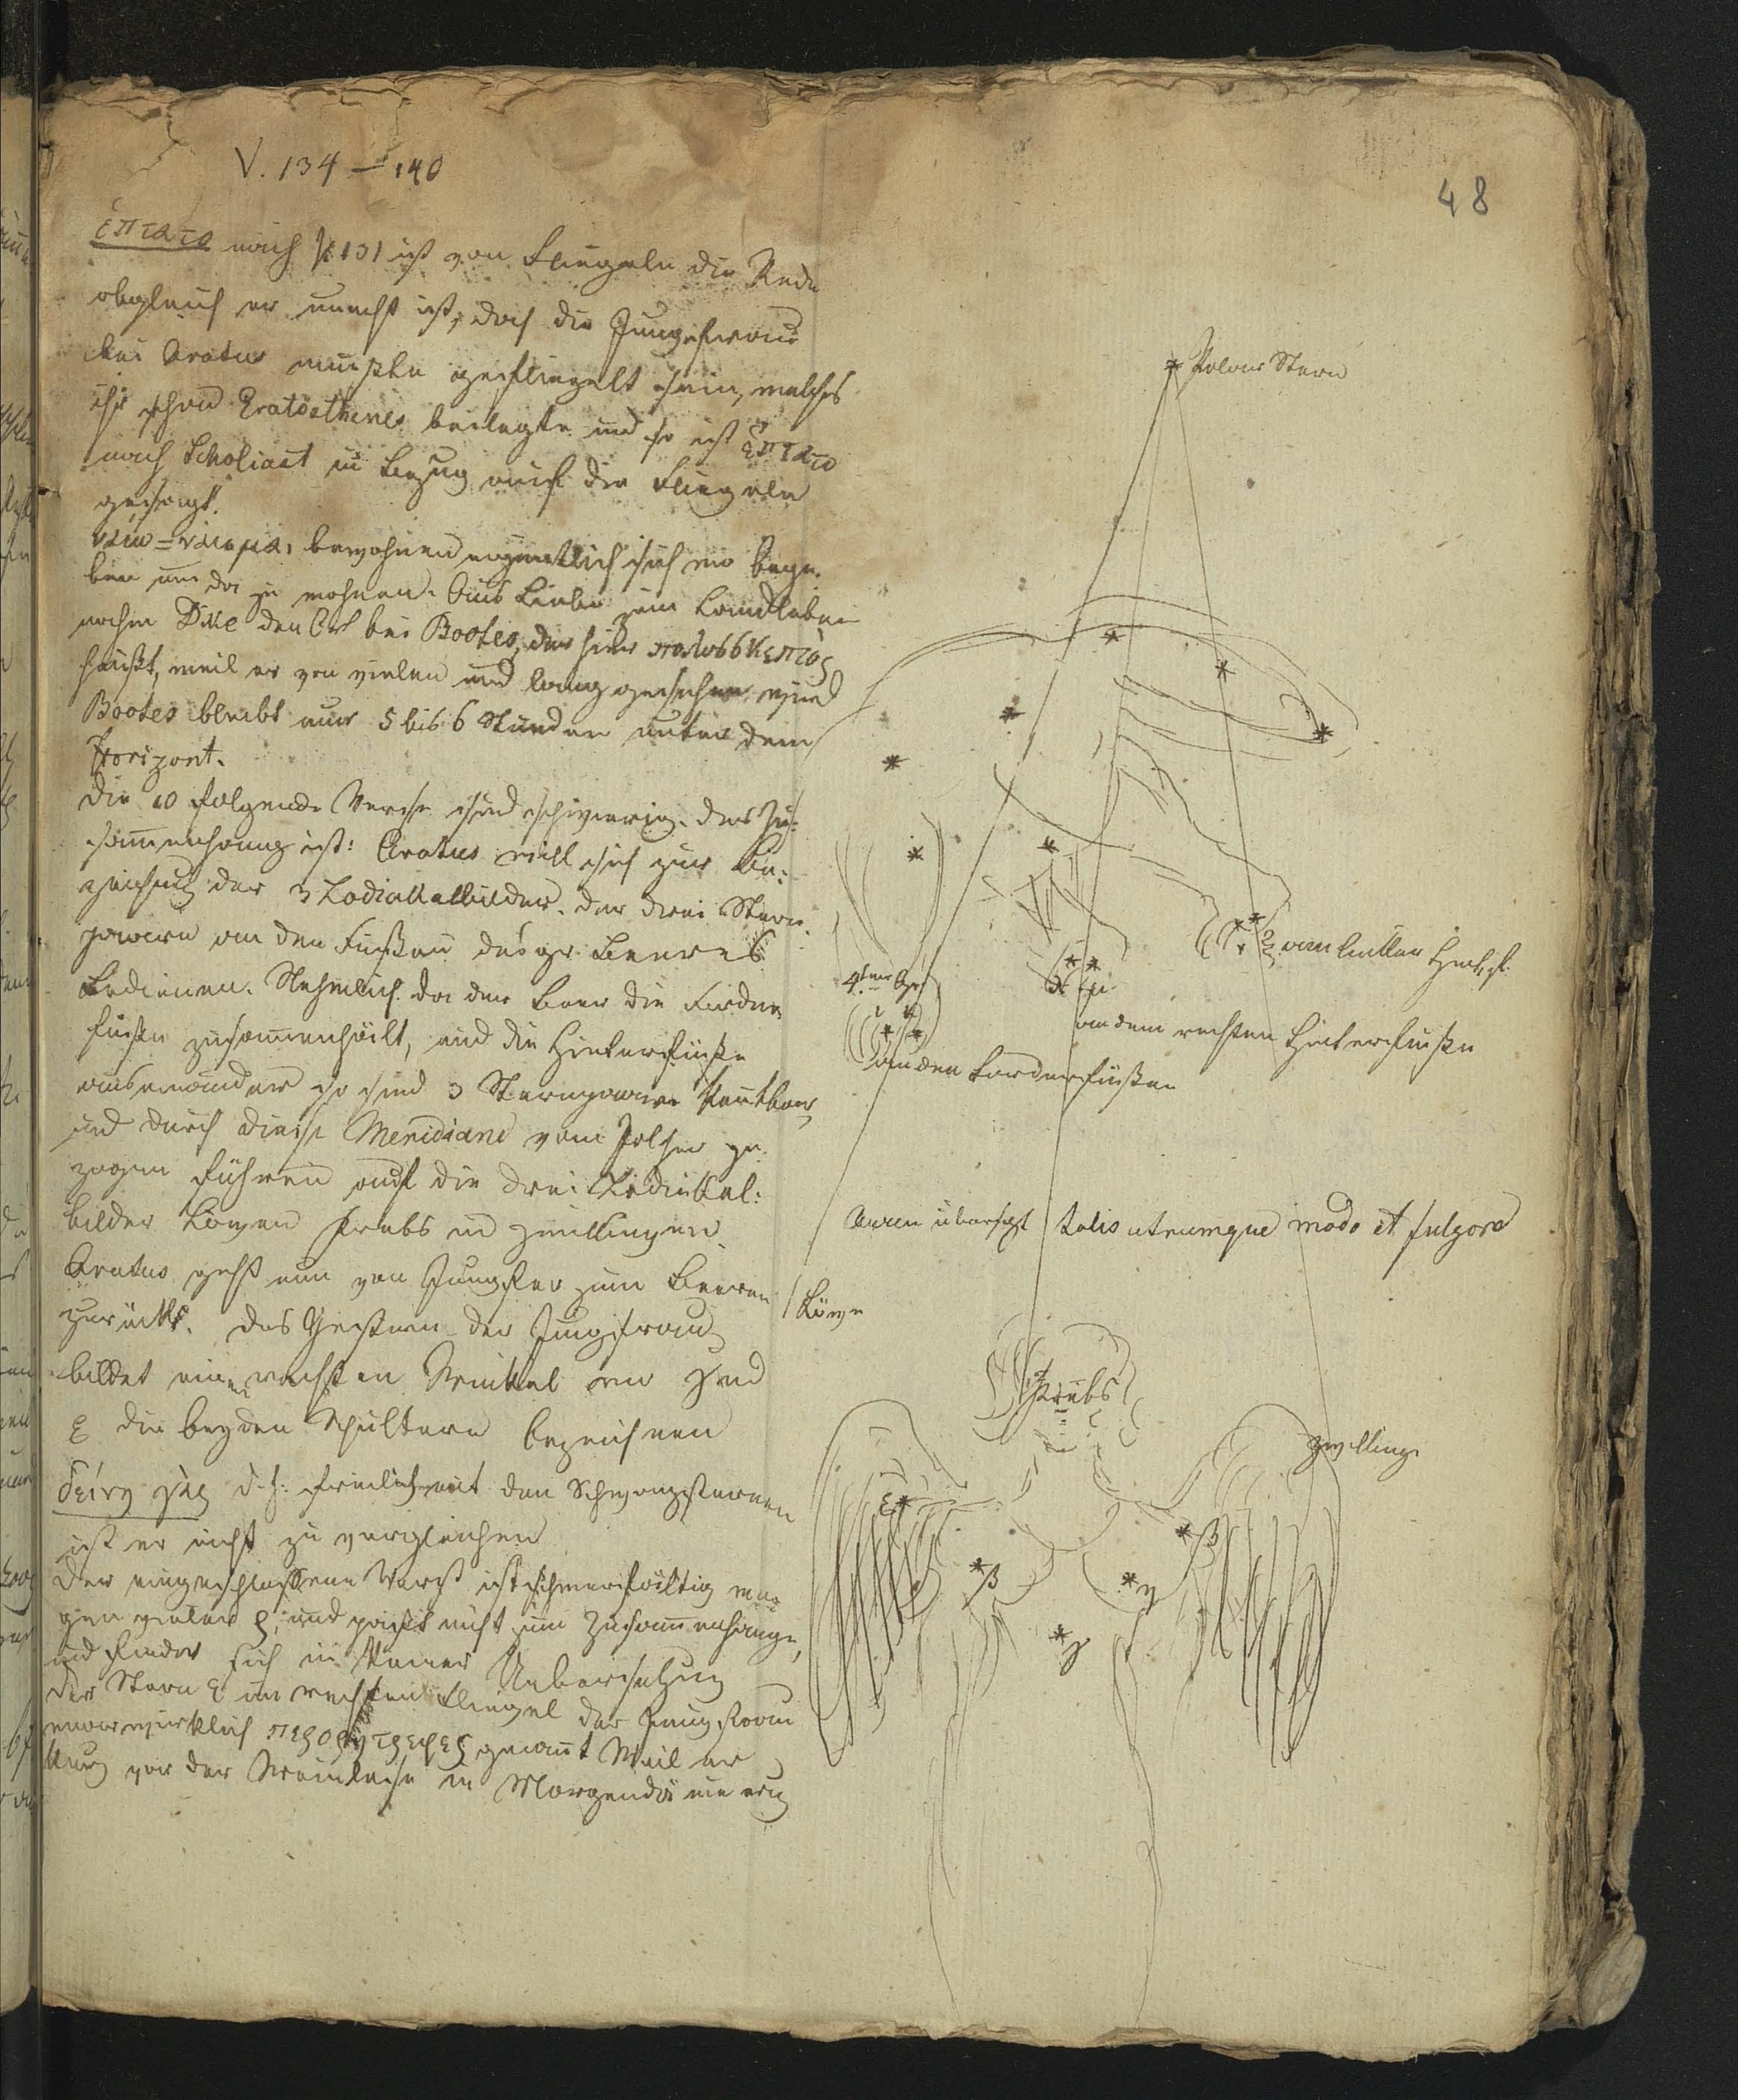 48
V. 134 – 140
ἔπτατο nach V 131 ist von Fluegeln die Rede
obgleich er unecht ist, doch die Jungfrau
bei Aratus muszte gefluegelt sein, welches
ihr schon Eratosthenes beilegte und so ist ἔπτατο
nach Scholiast in Bezug auf die Fluegeln
gesagt.
ναίω = ναίομαι bewohnen eigentlich sich wo bege-
ben um da zu wohnen. Aus Liebe zum Landleben
nahm Dike den Ort bei Bootes, der hier πολυσσκεπτος
heiszt, weil er von vielen und lang gesehen wird
Bootes bleibt nur 5 bis 6 Stunden unter dem
Horizont.
Die 10 folgende Verse sind schwierig. Der Zu-
samenhang ist: Aratus will sich zur Be-
zeichnung der 3 Zodiakalbilder der drei Stern-
paaren an den Fuszen des gr. Baeres
bedienen. Nehmlich da der Baer die Forder-
fusze zusamenhält, und die Hinterfüsze
auseinander so sind 3 Sternpaare kentbar
und durch diese Meridiane vom Pol her ge-
zogen führen auf die drei Zodiakal-
bilder Lowen Krebs und Zwillingen.
Aratus geht nun von Jungfer zum Baeren
zurück. Das Gestirn der Jungfrau
bildet einen rechten Winkel wo γ und
ε die beyden Schultern bezeichnen
δεινη γὰρ d. h. freilich mit den Schwanzsternen
ist er nicht zu vergleichen
Der eingeschlossene Vers ist schwerfältig we-
gen vieler ρ, und paszt nicht zum Zusamenhange,
und findet sich in keiner Uebersetzung
Der Stern ε im rechten Fluegel der Jungfrau
war wirklich προτρυγητηρ genant weil er
kurz vor der Weinlese in Morgendämerung
Polar Stern
am linken Hinterf.
λ μ
an dem rechten Hinterfusze
an den Vorderfüszen
Avien übersezt talis utrumque modo et fulgore
Löwe
Krebs
Zwilling
ε
β
β
η
γ